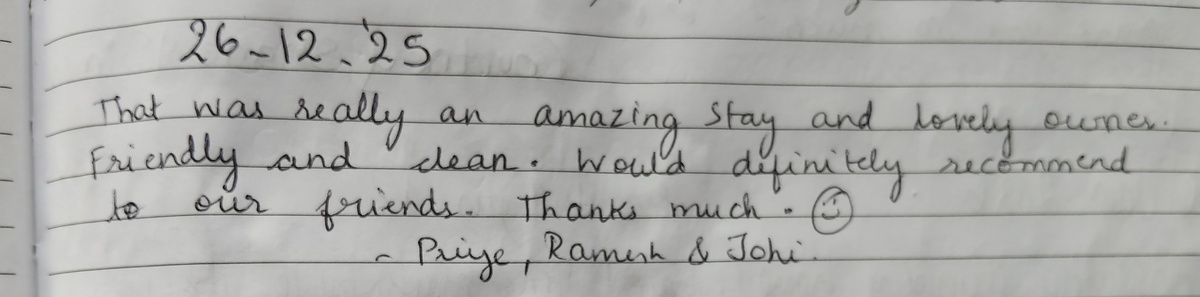 26-12-'25
That was really an amazing stay and lovely owner.
Friendly and clean. Would definitely recommend
to our friends. Thanks much. ☺
- Priye, Ramesh & Johi.